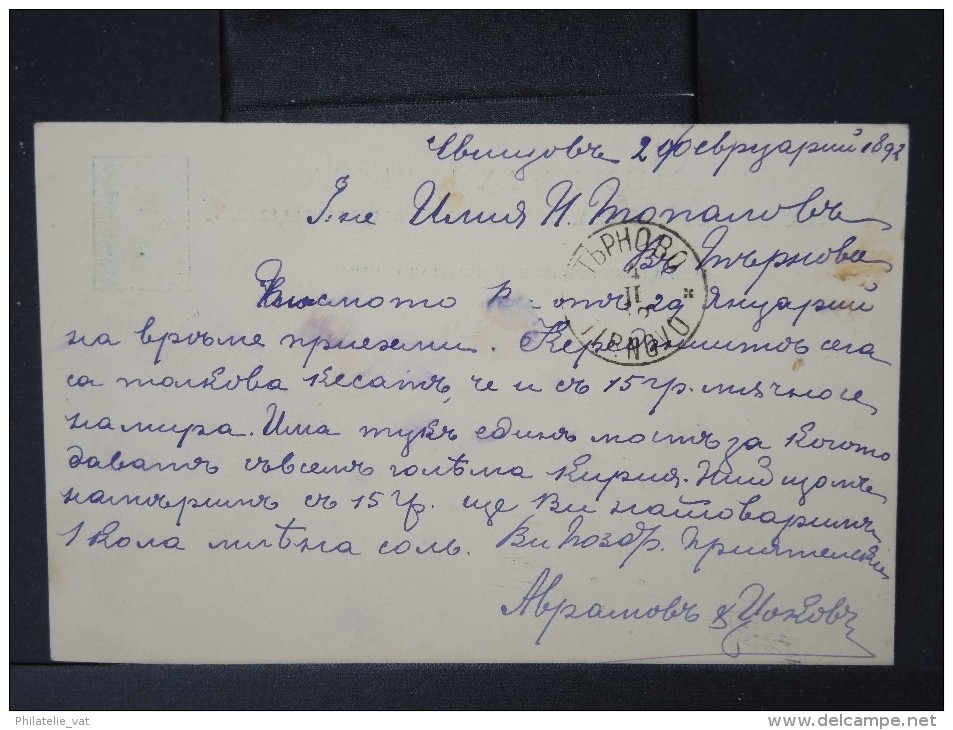 Свищовъ 2 Февруарий 1892
Г-не Илия Н. Топаловъ
Въ Търново
ТЪРНОВО
II
TIRNOVO
Писмото Ви отъ 29 Януарий
на врѣме приехми. Кераджиитѣ сега
са толкова кесатъ, че и съ 15 гр. мѫчно се
намира. Има тукъ единъ мостъ за когото
даватъ съвсемъ голѣма кирия. Ний щомъ
намѣримъ съ 15 гр. ще Ви натоваримъ
1 кола млѣна соль. Ви Поздр. Приятелски
Аврамовъ & Цоковъ
Philatelie_vat
www.delcampe.net